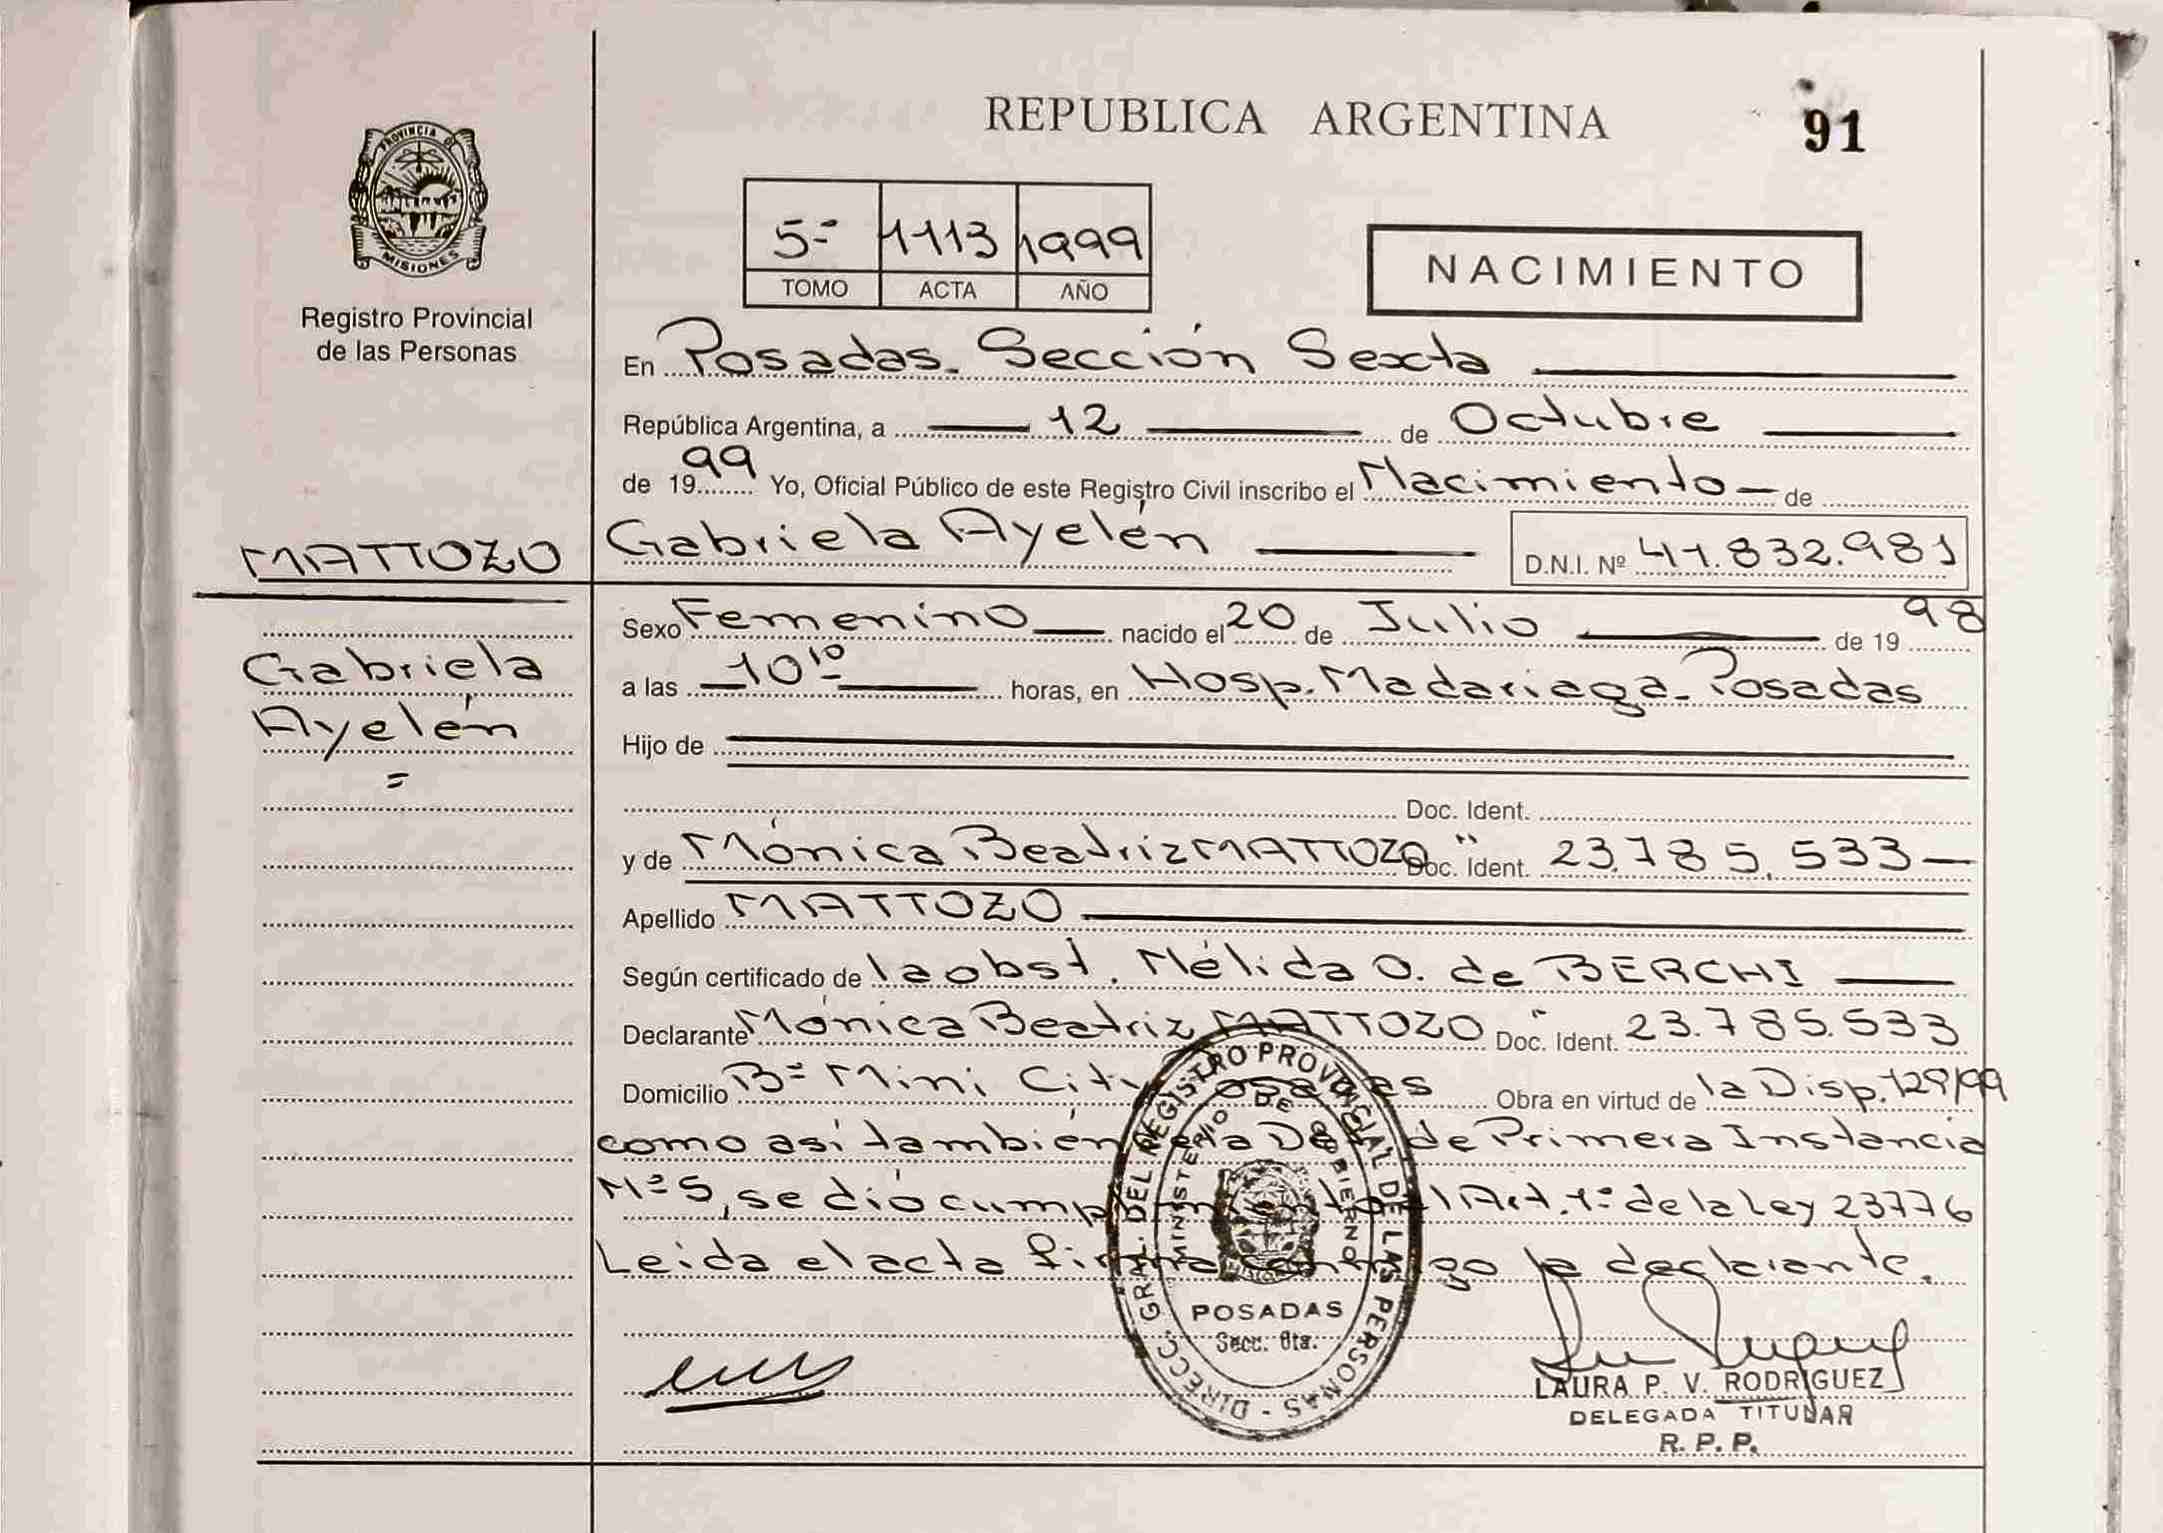 REPUBLICA ARGENTINA
91
PROVINCIA DE
MISIONES
Registro Provincial
de las Personas
5º 1113 1999
TOMO ACTA AÑO
NACIMIENTO
En Posadas. Sección Sexta
República Argentina, a 12 de Octubre
de 1999 Yo, Oficial Público de este Registro Civil inscribo el Nacimiento de
MATTOZO
Gabriela Ayelén
Gabriela Ayelén D.N.I. Nº 41.832.981
Sexo Femenino nacido el 20 de Julio de 1998
a las 10 10 horas, en Hosp. Madariaga. Posadas
Hijo de
Doc. Ident.
y de Mónica Beatriz MATTOZO Doc. Ident. " 23.785.533
Apellido MATTOZO
Según certificado de la obst. Nélida O. de BERCHI
Declarante Mónica Beatriz MATTOZO Doc. Ident. " 23.785.533
Domicilio Bº Mini City Posadas Obra en virtud de la Disp. 129/99
como así también la Def. de Primera Instancia
Nº 5, se dió cumplimiento al Art. 1º de la Ley 23776
Leida el acta firma conmigo la declarante.
DIRECC. GRAL. DEL REGISTRO PROVINCIAL DE LAS PERSONAS
MINISTERIO DE GOBIERNO
MISIONES
POSADAS
Secc. 6ta.
LAURA P. V. RODRIGUEZ
DELEGADA TITULAR
R. P. P.